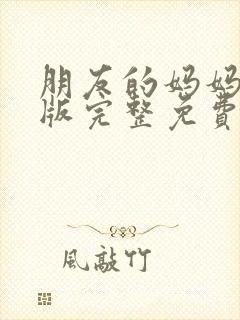 朋友的妈妈
版完整免費
風敲竹